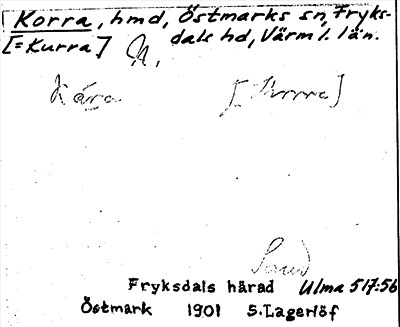 Korra, hmd, Östmarks sn, Fryks-
[=Kurra] dals hd, Värml. län.
Kåra [Kurra]
Sand
Fryksdals härad Ulma 517:56
Östmark 1901 S.Lagerlöf